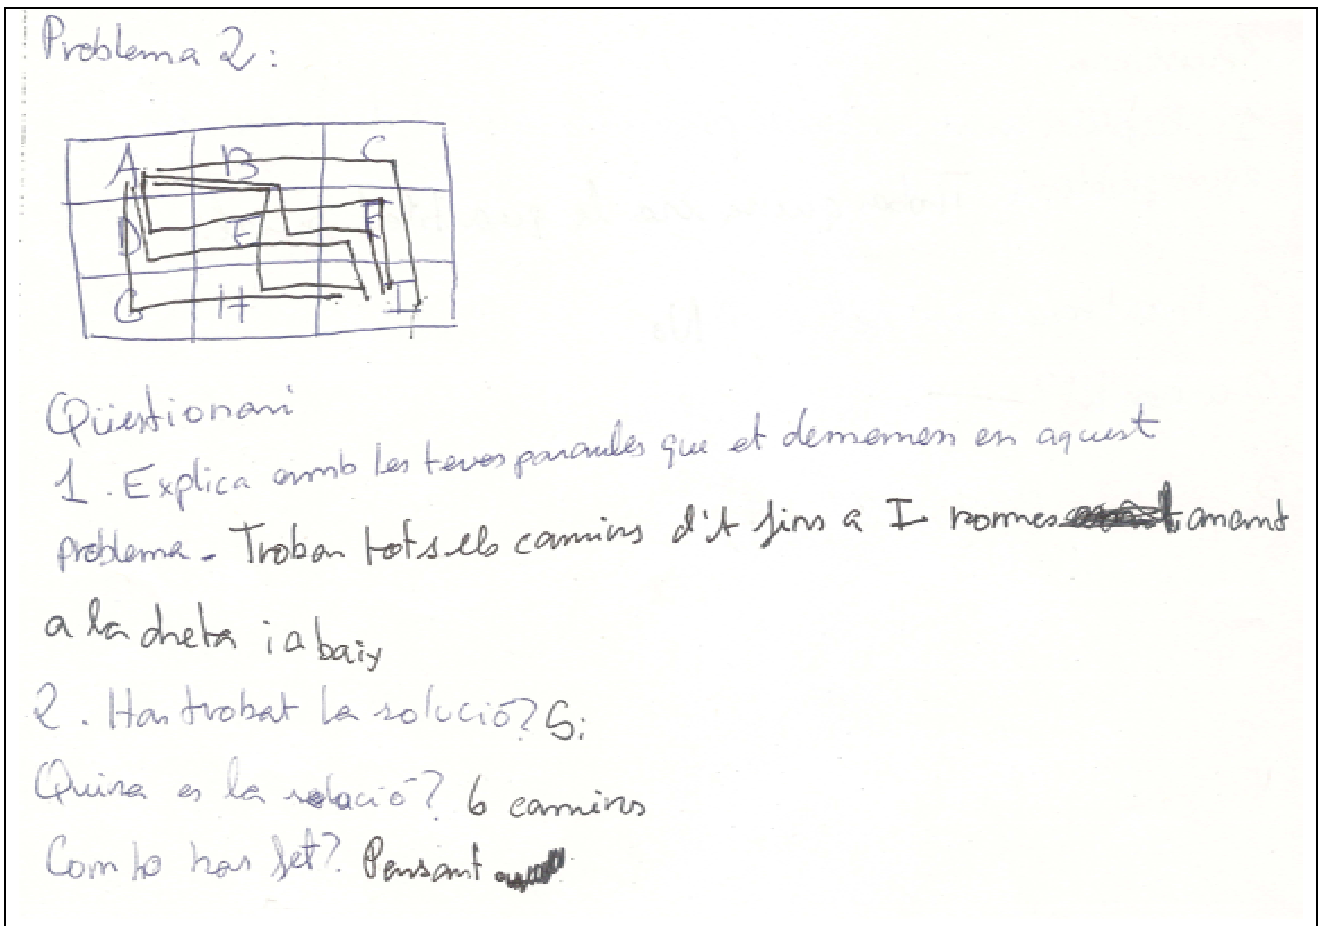 Problema 2:
A B C
D E F
G H I
Qüestionari
1. Explica amb les teves paraules que et demanen en aquest
problema. Trobar tots els camins d'A fins a I nomes anant
a la dreta i a baix
2. Has trobat la solució? Si
Quina es la solució? 6 camins
Com ho has fet? Pensant